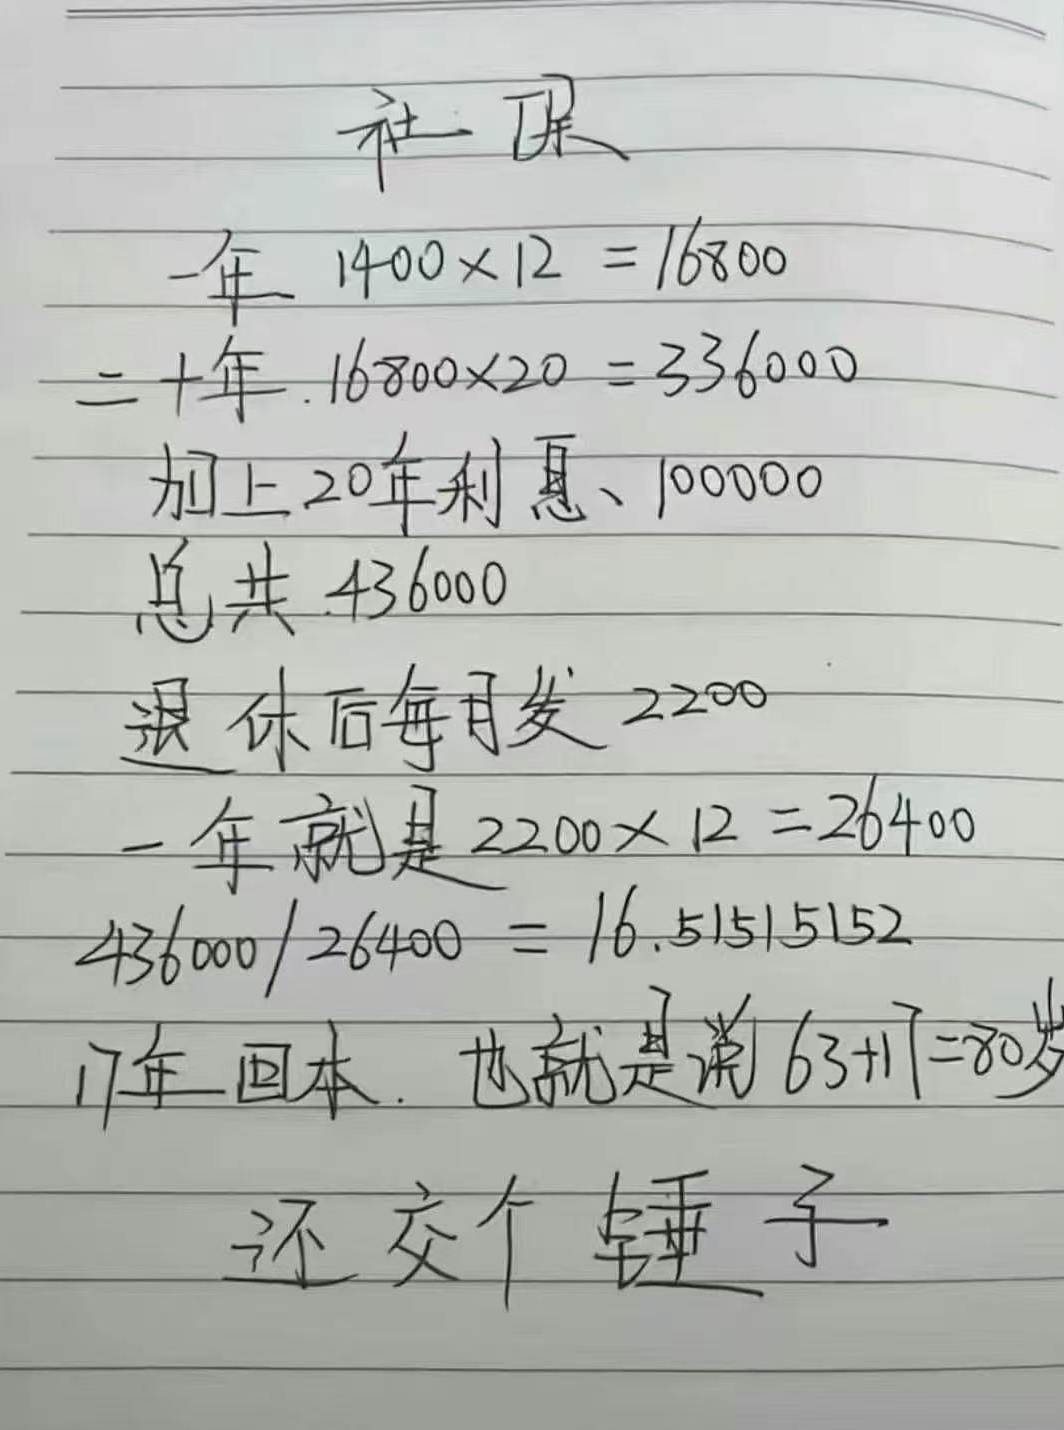 社保
一年 1400×12=16800
二十年.16800×20=336000
加上20年利息、100000
总共.436000
退休后每月发 2200
一年就是2200×12=26400
436000/26400=16.51515152
17年回本.也就是说63+17=80岁
还交个锤子